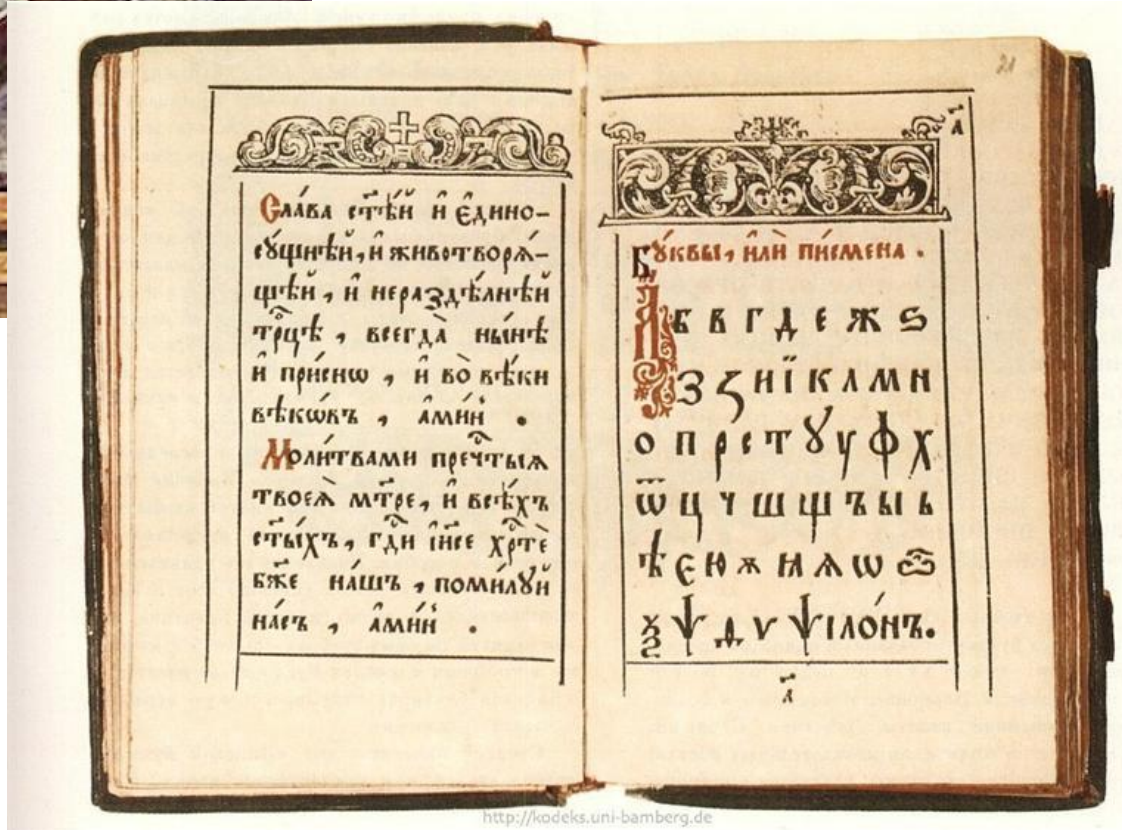 Сла́ва ст҃ѣ́й и҆ є҆дино-
сꙋ́щнѣй, и҆ животворѧ́-
щѣй, и҆ нераздѣ́лнѣй
трⷪ҇цѣ, всегда̀ ны́нѣ
и҆ при́снѡ, и҆ во̀ вѣ́ки
вѣкѡ́въ, а҆ми́нь.
Моли́твами пречⷭ҇тыѧ
твоеѧ̀ мт҃ре, и҆ всѣ́хъ
ст҃ы́хъ, гдⷭ҇и і҆и҃се хрⷭ҇тѐ
бж҃е на́шъ, поми́лꙋй
на́съ, а҆ми́нь.
21
а҃
Бꙋ́квы, и҆лѝ пи́смена.
А б в г д е ж ѕ
з ꙁ и ї к л м н
о п р с т ꙋ у ф х
ѿ ц ч ш щ ъ ы ь
ѣ є ю ѫ ꙗ ѧ ѡ ѻ
ѯ ѱ ѳ ѵ ѱіло́нъ.
а҃
http://kodeks.uni-bamberg.de